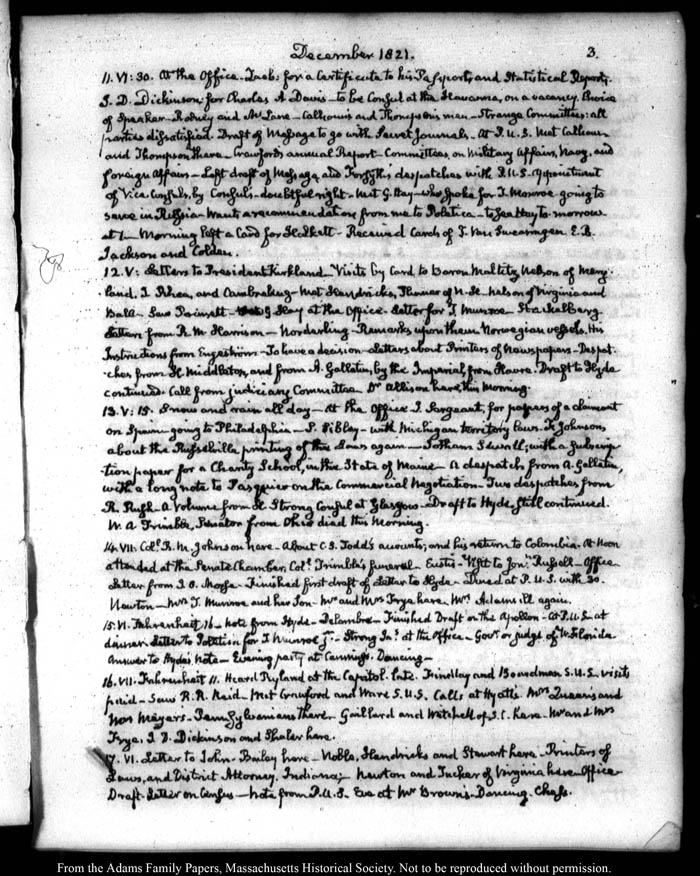 December 1821. 3.
11. VI:30. At the Office. Jacks for a Certificate to his Passport, and Statistical Report.
S. D. Dickinson for Charles A Davis — to be Consul at the Havanna, on a vacancy. Choice
of Speaker — Rodney and McLane — Calhoun's and Thompson's man — Strange Committees: all
parties dissatisfied. Draft of Message to go with Secret Journals. At P.U.S. Met Calhoun
and Thompson there — Crawford's annual Report — Committees, on Military Affairs, Navy, and
foreign Affairs — Left draft of Message and Forsyth's despatches with P.U.S. Appointment
of Vice Consuls, by Consuls — doubtful right — Met G. Hay — who spoke for J. Monroe going to
serve in Russia — wants a recommendation from me to Poletica — to see Hay to-morrow
at 1 — Morning left a Card for Halkett — Received Cards of T. Van Swearingen E. B.
Jackson and Colden.
12. V: Letters to President Kirkland — Visits by Card to Baron Maltitz, Nelson of Mary-
land, J. Rhea, and Cambreleng — Met Hendricks, Thomas of N. Nelson of Virginia and
Ball — Saw Poinsett — G Hay at the Office. Letter for J Munroe — Stackelberg
Letters from R. M. Harrison — Norderling — Remarks upon them Norwegian vessels. His
Instructions from Engeström — To have a decision — Letters about Printers of Newspapers — Despat-
ches from H. Middleton, and from A. Gallatin, by the Imperial, from Havre. Draft to Hyde
continued. Call from judiciary Committee Dr Allison here, this Morning.
13. V:15. Snow and rain all day — At the Office J. Sergeant, for papers of a claimant
on Spain — going to Philadelphia — S. Sibley — with Michigan territory laws. Johnson's
about the Russelville printing of the Laws again — Jotham Sewall, with a subscrip-
tion paper for a Charity School, in the State of Maine — A despatch from A. Gallatin,
with a long note to Pasquier on the Commercial Negotiation — Two despatches from
R. Rush. A volume from H Strong Consul at Glasgow — Draft to Hyde, still continued.
W. A Trimble, Senator from Ohio died this Morning.
14. VII. Col. R. M. Johnson here — About C. S. Todd's accounts, and his return to Colombia. At Noon
attended at the Senate Chamber, Col. Trimble's funeral — Eustis — Visit to Jon. Russell — Office
Letter from J. O. Morse — Finished first draft of Letter to Hyde — Dined at P.U.S. with 30.
Newton — Mrs J. Munroe and her Son — Mr and Mrs Frye here. Mrs Adams ill again.
15. VI. Fahrenheit 16 — note from Hyde — Delambre — Finished Draft on the Apollon — At P.U.S. at
dinner. Letter to Poletica for J Munroe jr. — Strong Jas at the Office — Govr or judge of W. Florida
Answer to Hyde's Note — Evening party at Canning's. Dancing —
16. VII. Fahrenheit 11. Heard Ryland at the Capitol. late. Findlay and Boardman S.U.S. visits
paid — Saw R. R. Reid — Met Crawford and Ware S.U.S. Calls at Hyatt's Mrs
and Mrs Meyers — Pennsylvanians there — Gaillard and Mitchell of S.C. here. Mr and Mrs
Frye, J. D. Dickinson and Thaler here.
17. VI. Letter to John. Bailey here — Noble, Hendricks and Stewart here — Printers of
Laws, and District Attorney, Indiana; Newton and Tucker of Virginia here — Office
Draft. Letter on Census — note from P.U.S. Eve at Mr Brown's — Dancing. Chess.
From the Adams Family Papers, Massachusetts Historical Society. Not to be reproduced without permission.